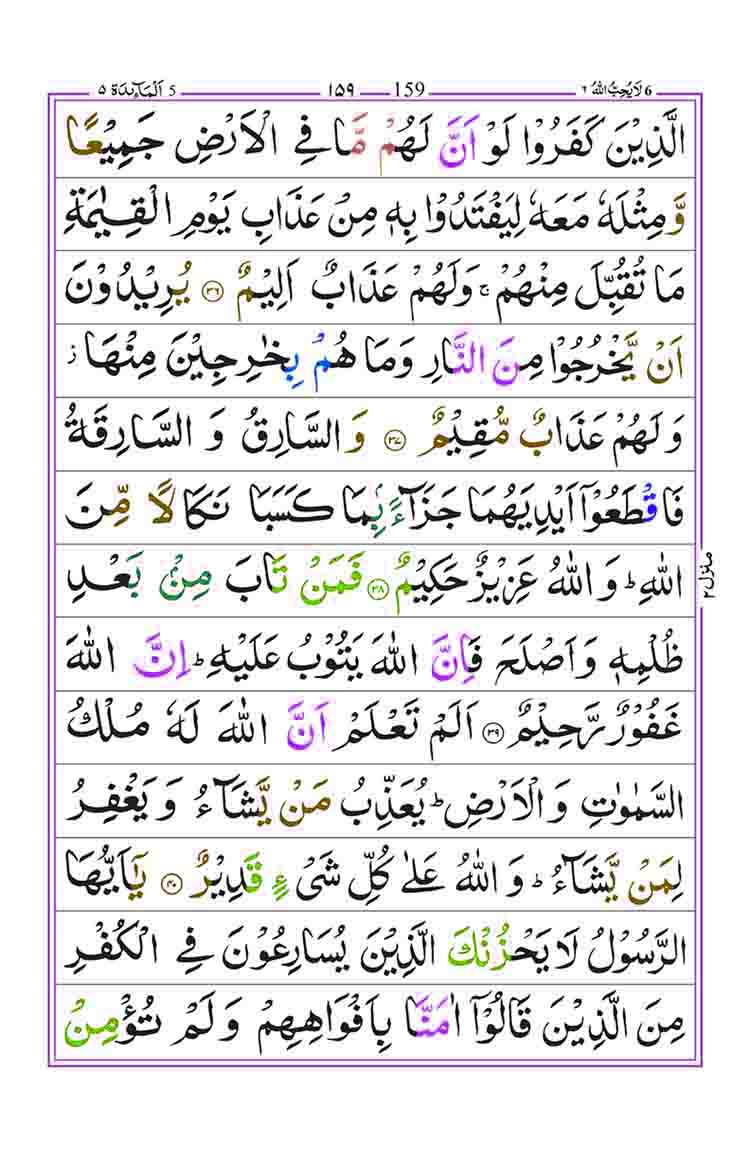 6 لَا یُحِبُّ اللّٰهُ ٦ 159 ۱۵۹ 5 اَلْمَآئِدَة ۵
الَّذِیْنَ كَفَرُوْا لَوْ اَنَّ لَهُمْ مَّا فِی الْاَرْضِ جَمِیْعًا
وَّمِثْلَهٗ مَعَهٗ لِیَفْتَدُوْا بِهٖ مِنْ عَذَابِ یَوْمِ الْقِیٰمَةِ
مَا تُقُبِّلَ مِنْهُمْ ۚ وَلَهُمْ عَذَابٌ اَلِیْمٌ ﴿۳۶﴾ یُرِیْدُوْنَ
اَنْ یَّخْرُجُوْا مِنَ النَّارِ وَمَا هُمْ بِخٰرِجِیْنَ مِنْهَا ؗ
وَلَهُمْ عَذَابٌ مُّقِیْمٌ ﴿۳۷﴾ وَالسَّارِقُ وَ السَّارِقَةُ
فَاقْطَعُوْۤا اَیْدِیَهُمَا جَزَآءًۢ بِمَا كَسَبَا نَكَالًا مِّنَ
اللّٰهِ ؕ وَ اللّٰهُ عَزِیْزٌ حَكِیْمٌ ﴿۳۸﴾ فَمَنْ تَابَ مِنْۢ بَعْدِ
ظُلْمِهٖ وَاَصْلَحَ فَاِنَّ اللّٰهَ یَتُوْبُ عَلَیْهِ ؕ اِنَّ اللّٰهَ
غَفُوْرٌ رَّحِیْمٌ ﴿۳۹﴾ اَلَمْ تَعْلَمْ اَنَّ اللّٰهَ لَهٗ مُلْكُ
السَّمٰوٰتِ وَالْاَرْضِ ؕ یُعَذِّبُ مَنْ یَّشَآءُ وَیَغْفِرُ
لِمَنْ یَّشَآءُ ؕ وَ اللّٰهُ عَلٰی كُلِّ شَیْءٍ قَدِیْرٌ ﴿۴۰﴾ یٰۤاَیُّهَا
الرَّسُوْلُ لَا یَحْزُنْكَ الَّذِیْنَ یُسَارِعُوْنَ فِی الْكُفْرِ
مِنَ الَّذِیْنَ قَالُوْۤا اٰمَنَّا بِاَفْوَاهِهِمْ وَلَمْ تُؤْمِنْ
منزل ۲